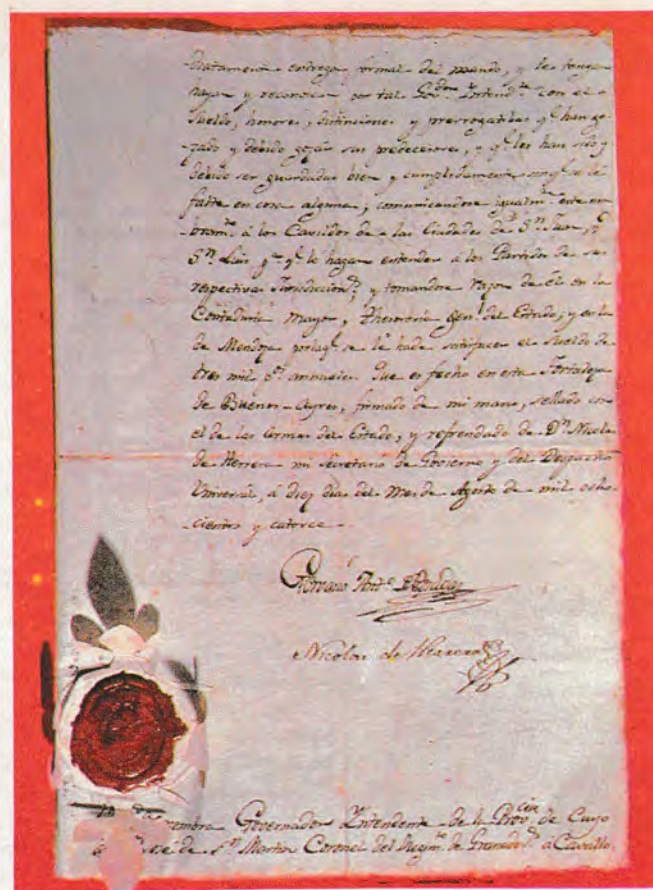 diatamente entrega formal del mando, y le tengan
hayan y reconoscan por tal Gov.dor Intend.te con el
sueldo, honores, distinciones y prerrogativas q.e han go-
zado y debido gozar sus predecesores, y q.e les han sido y
debido ser guardadas bien y cumplidamente sin q.e se le
falte en cosa alguna; comunicandose igualm.te este nom
bram.to à los Cavildos de las Ciudades de S.n Juan, y
S.n Luis p.a q.e lo hagan entender à los Partidos de su
respectiva Jurisdiccion; y tomandose razon de él en la
Contaduria Mayor, Thesoreria Gen.l del Estado; y en la
de Mendoza por la q.e se le ha de satisfacer el sueldo de
tres mil p.s annuales. Que es fecho en esta Fortaleza
de Buenos-Ayres, firmado de mi mano, sellado con
el de las Armas del Estado, y refrendado de D.n Nicolas
de Herrera mi Secretario de Govierno y del Despacho
Universal, à diez dias del Mes de Agosto de mil ocho-
cientos y catorce
Gervasio Ant.o Posadas
Nicolas de Herrera
Governador Intendente de la Prov.cia de Cuyo
de S.n Martin Coronel del Regim.to de Granad.s à Cavallo.